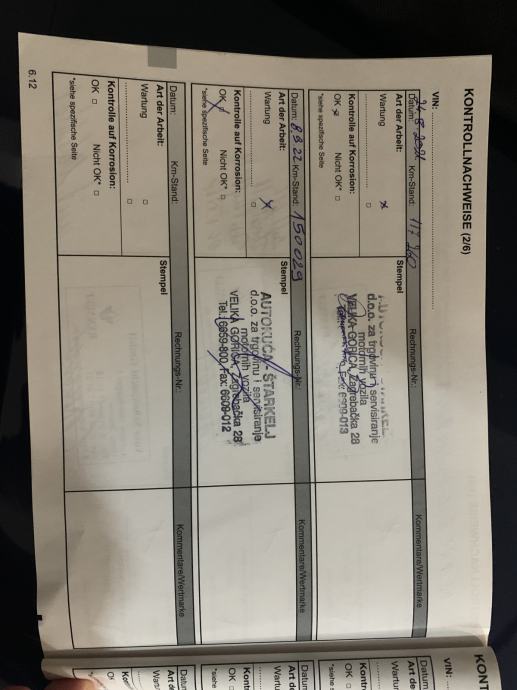 KONTROLLNACHWEISE (2/6)
VIN:
Datum: Km-Stand: 117 260 Rechnungs-Nr.: Kommentare/Wertmarke
Art der Arbeit: Stempel
Wartung x
Kontrolle auf Korrosion:
OK x Nicht OK*
*siehe spezifische Seite
d.o.o. za trgovinu i servisiranje
motornih vozila
VELIKA GORICA, Zagrebačka 28
Fax: 6609-013
Datum: 8.9.22 Km-Stand: 150029 Rechnungs-Nr.: Kommentare/Wertmarke
Art der Arbeit: Stempel
Wartung x
Kontrolle auf Korrosion:
OK x Nicht OK*
*siehe spezifische Seite
AUTOKUĆA ŠTARKELJ
d.o.o. za trgovinu i servisiranje
motornih vozila
VELIKA GORICA, Zagrebačka 28
Tel.: 6659-800, Fax: 6609-012
Datum: Km-Stand: Rechnungs-Nr.: Kommentare/Wertmarke
Art der Arbeit: Stempel
Wartung
Kontrolle auf Korrosion:
OK Nicht OK*
*siehe spezifische Seite
6.12
KON
VIN:
Datum
Art de
Wartu
Kontr
OK
*siehe s
Datum
Art d
Wart
Kont
OK
*siehe
Datu
Art de
Wart
Kon